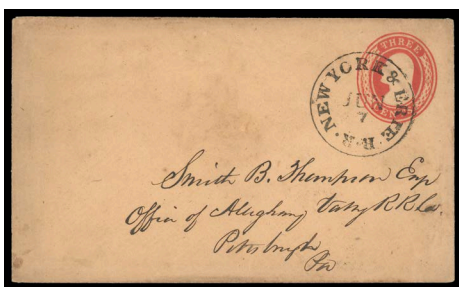 THREE
NEW YORK & ERIE R.R.
JUN
7
Smith B. Thompson Esq
Office of Allegheny Valley R R Co.
Pittsburgh
Pa